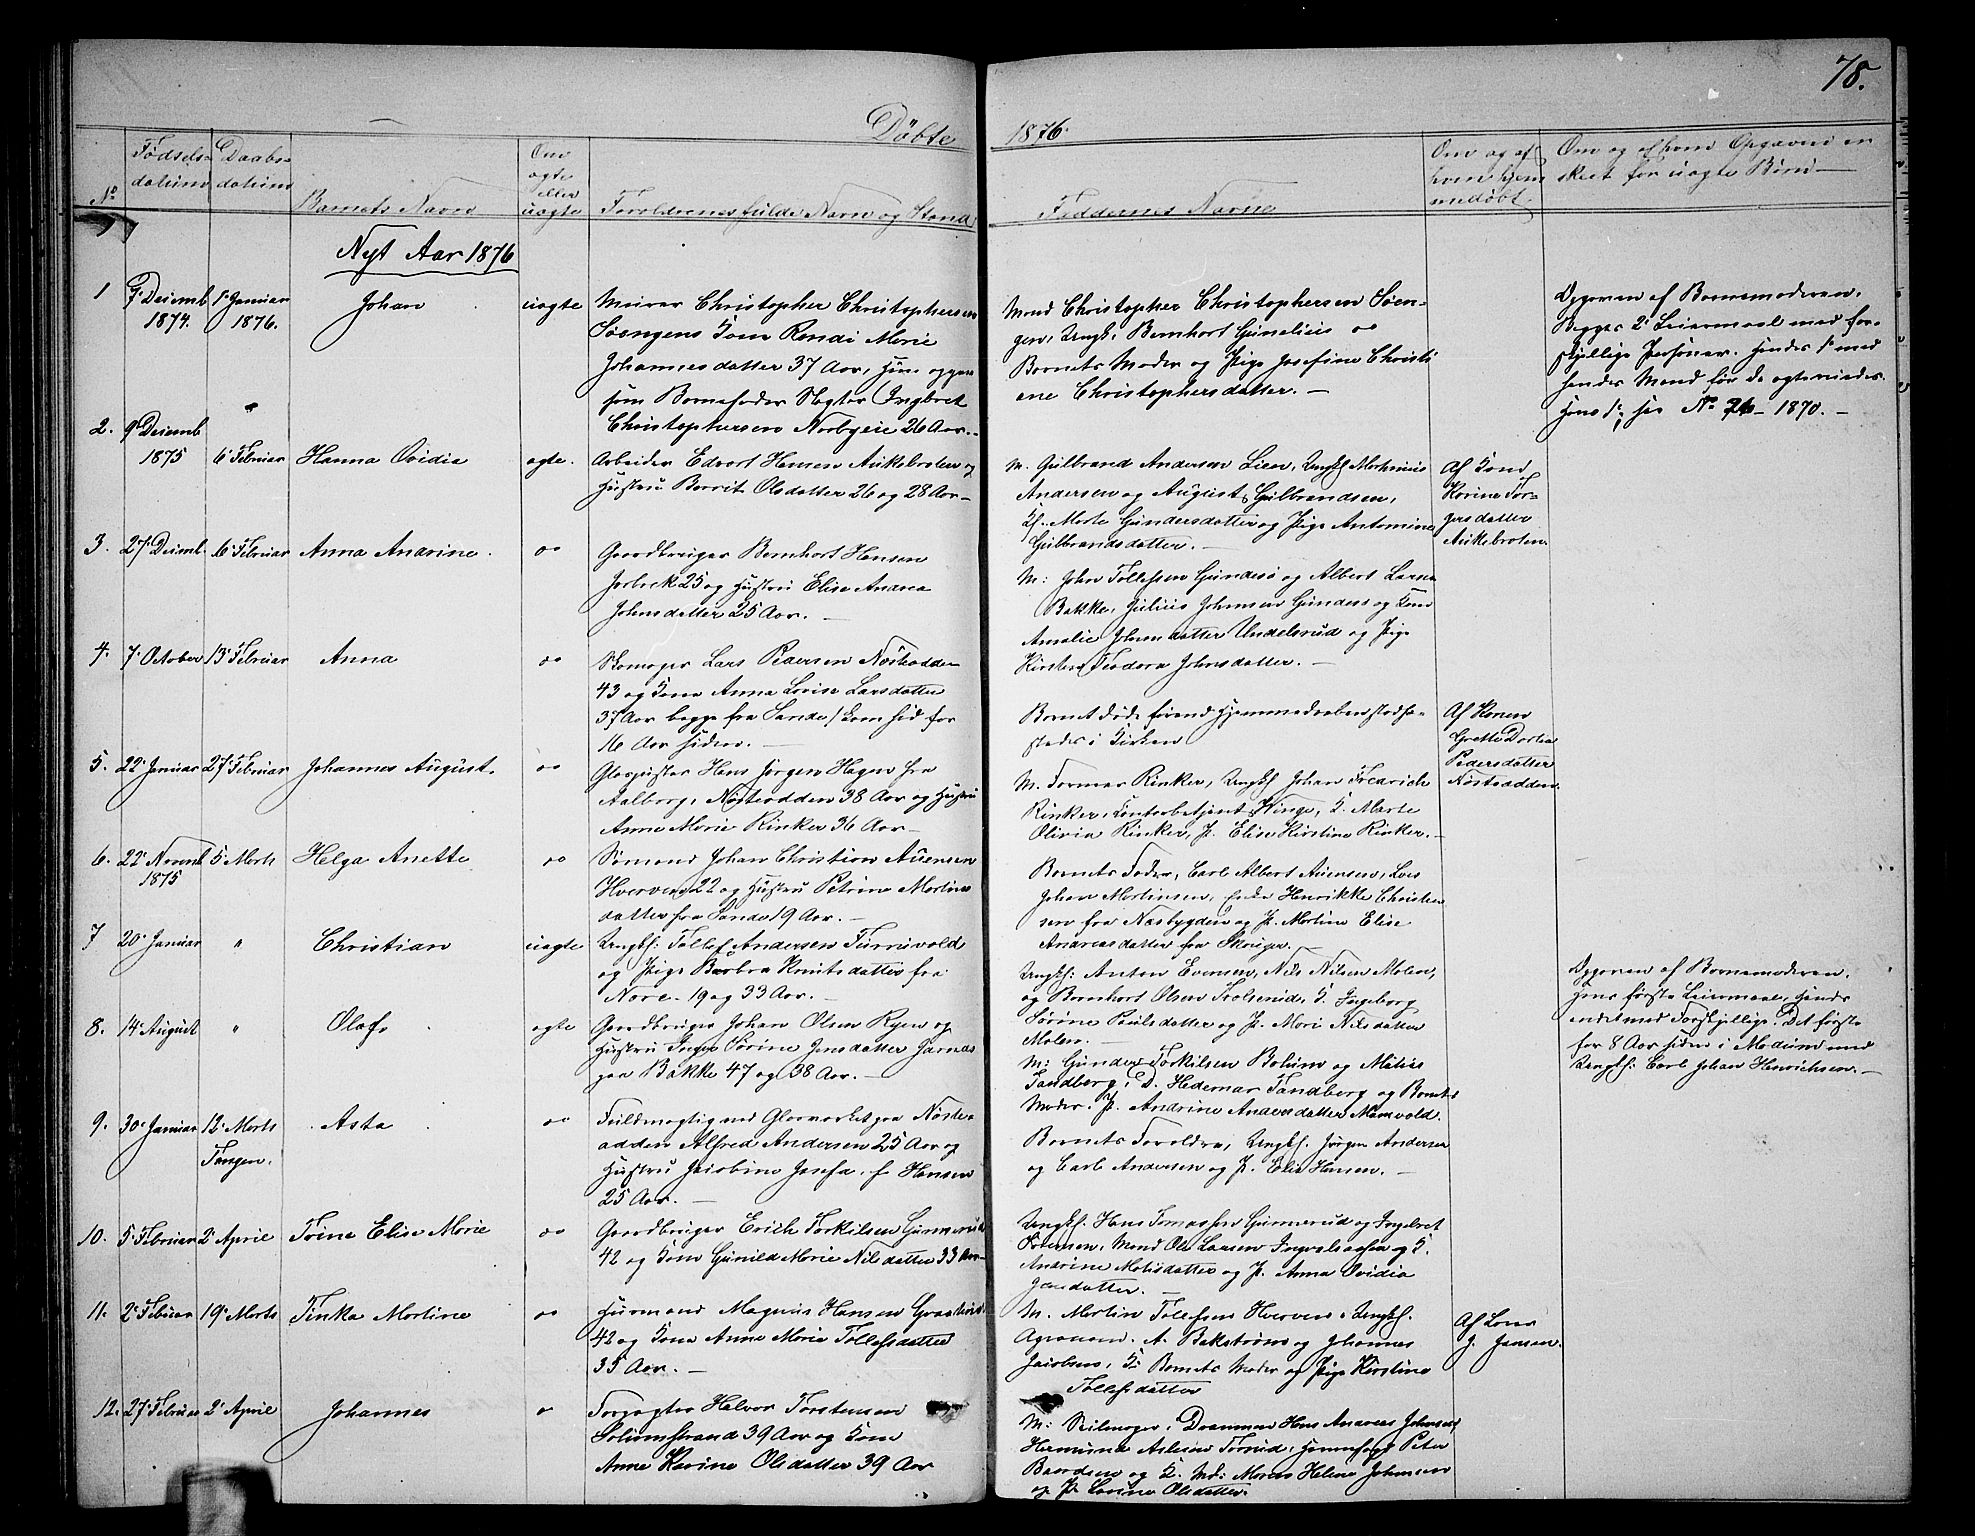 78.
Döbte
1876.
Fødsels-
datum
Daabs-
datum
No
Barnets Navn
Om
ægte
eller
uægte
Forældrenes fulde Navn og Stand
Faddernes Navne
Om og af
hvem hjem
medøbt.
Om og af hvem Opgaven er
skeet for uægte Børn
Nyt Aar 1876
1
Decemb
1874.
1 Januar
1876.
Johan
uægte
Murer Christopher Christophersen
Søengens Kone Randi Marie
Johannesdatter 37 Aar, Hun opgav
som Barnefader Slagter Ingbret
Christophersen Norbyeie 26 Aar.
Mand Christopher Christophersen Søen-
gen, Ungk. Bernhart Gunelius
Barnets Moder og Pige Josefine Christi
ane Christophersdatter. —
Opgaven af Barnemoderen.
Begges 2 Leiermaal med for-
skjellige Personer. Hendes 1 med
hendes Mand før de ægteviedes.
Hans 1 see No 1870. —
2.
9 Decemb
1875
6 Februar
Hanna Ovidia
ægte.
Arbeider Edvart Hansen Aukebraten og
Hustru Berrit Olsdatter 26 og 28 Aar —
M. Gulbrand Andersen Lien, Ungkf Mathinius
Andersen og August Gulbrandsen,
Kf. Marte Gundersdatter og Pige Antomine
Gulbrandsdatter. —
Af Kone
Karine Tor-
gersdatter
Aukebraten.
3.
27 Decmb.
6 Februar
Anna Andrine
Gaardbruger Bernhart Hansen
25 og Hustru Elise Andrea
Johnsdatter 25 Aar. —
M: John Tollefsen Gundesø og Albert Larsen
Bakke, Julius Johnsen Gundesø og Kone
Amalie Johnsdatter Undelsrud og Pige
Kirsten Teodora Johnsdatter. —
4.
7 October
13 Februar
Anna
Skomager Lars Pedersen Nøsteodden
43 og Kone Anna Lovise Larsdatter
37 Aar begge fra Sande / Kom hid for
16 Aar siden. —
Barnet døde førend Hjemmedaaben stadfæ-
stedes i Kirken
Af Konen
Grette Dortea
Pedersdatter
Nøsteodden.
5.
22 Januar
27 Februar
Johannes August.
Glaspuster Hans Jørgen Hagen fra
Aalborg, Nøsteodden 38 Aar og Hustru
Anne Marie Rinker 36 Aar —
M. Formar Rinker, Ungkf Johan Fredrich
Rinker, Kontorbetjent Winge, K. Marte
Olivia Rinker, P. Elise Kirstine Rinker. —
6.
22 Novmb
1875
5 Marts
Helga Anette
Sømand Johan Christian Auensen
Hverven 22 og Hustru Petrine Martins
datter fra Sande 19 Aar. —
Barnets Fader, Carl Albert Auensen, Lods
Johan Martinsen, Enke Henrikke Christen
sen fra Næsbygden og P. Martine Elise
Andreasdatter fra Skouger.
7
20 Januar
"
Christian
uægte
Ungkf: Tollef Andersen Turruvold
og Pige Barbra Knutsdatter fra
Nore. 19 og 33 Aar. —
Ungkf: Anton Evensen, Nils Nilsen Molen,
og Bernhart Olsen Trolsrud, K. Ingeborg
Sørine Paulsdatter og P. Mari Nilsdatter
Molen.
Opgaven af Barnemoderen.
Hans første Leiermaal, Hendes
andet med Forskjellige. Det første
for 8 Aar siden i Modum med
Ungkf: Carl Johan Henrichsen. —
8.
14 August
"
Olaf
ægte
Gaardbruger Johan Olsen Ryen og
Hustru Inger Sørine Jensdatter Jarnæs
paa Bakke 47 og 38 Aar. —
M: Gunder Torkilsen Bolum og Matias
Sandberg, D. Hedemar Sandberg og Barnets
Moder. P. Andrine Andersdatter Mamvold.
9.
30 Januar
12 Marts
Tangen.
Asta
Fuldmægtig ved Glasværket paa Nøste
odden Alfred Andersen 25 Aar og
Hustru Jacobine Josefa. f. Hansen
25 Aar. —
Barnets Forældre, Ungkf. Jørgen Andersen
og Carl Andersen og P. Elise Hansen. —
10.
5 Februar
2 April
Trine Elise Marie
Gaardbruger Erich Torkilsen Gunnerud
42 og Kone Gunild Marie Nilsdatter 33 Aar —
Ungkf. Hans Tomassen Gunnerud og Ingebret
Sørensen, Mand Ole Larsen Ingvaldsaasen og K.
Andrine Matisdatter og P. Anna Ovidia
Jensdatter. —
11.
2 Februar
19 Marts
Tinka Martine
Husmand Magnus Hansen
42 og Kone Anne Marie Tollefsdatter
35 Aar. —
M. Martin Tollefsen Hverven, Ungkf.
Agronom. A. Bakstrøm og Johannes
Jacobsen, K: Barnets Moder og Pige Kirstine
Tollefsdatter
Af Lærer
J. Jensen.
12.
27 Februar
2 April
Johannes
Forpagter Halvor Torstensen
Solumstrand 39 Aar og Kone
Anne Karine Olsdatter 39 Aar
M: Seilmager i Drammen Hans Andreas Johnsen,
Hermund Aslesen Torrud,
Peter
Baardsen og K. Maren Helene Johnsen
og P. Lovine Olsdatter.